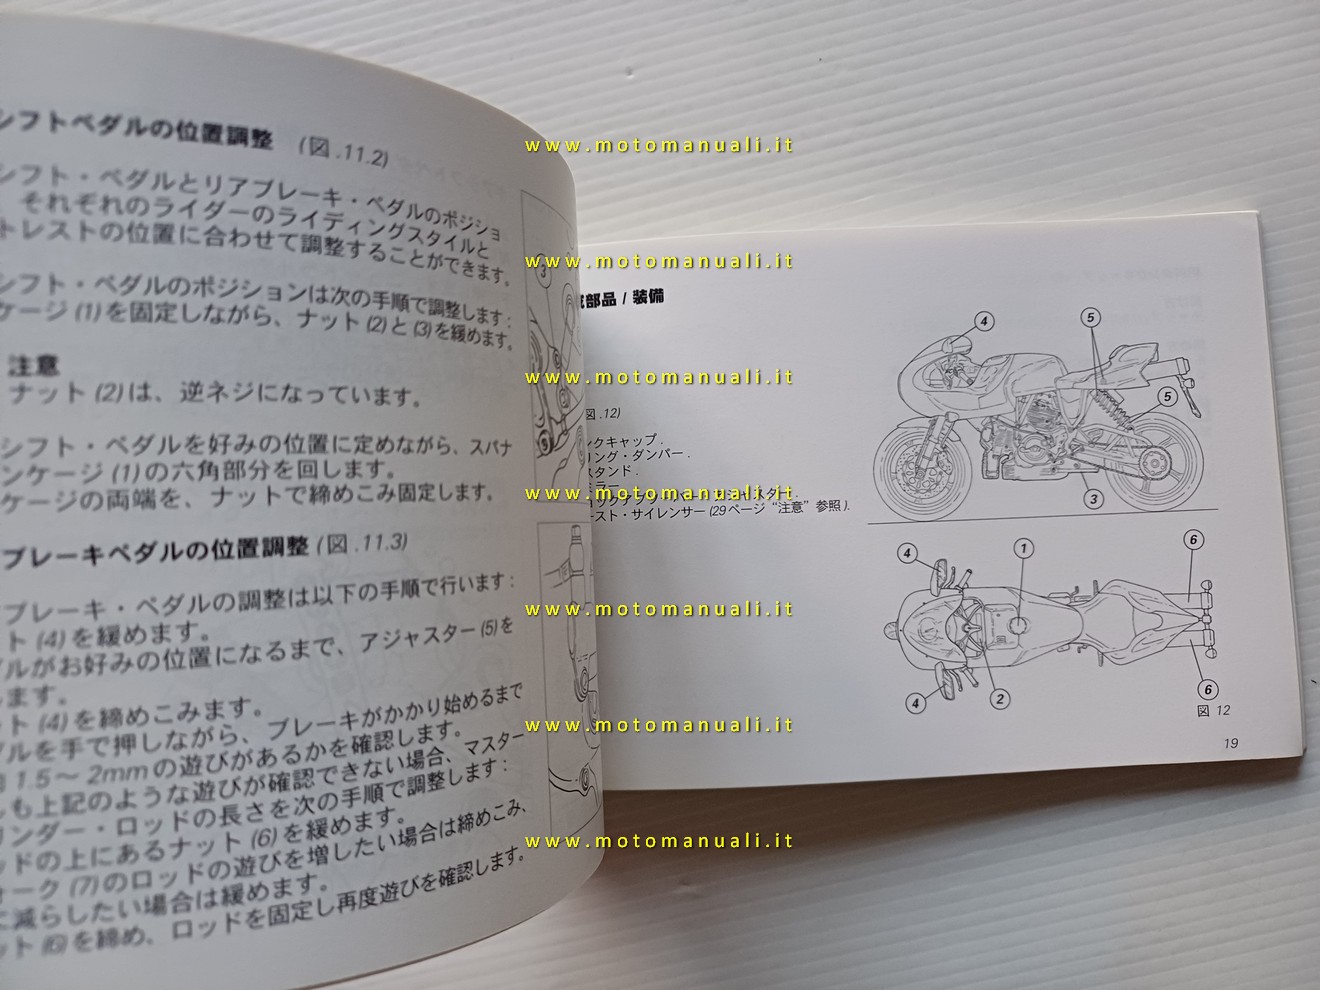 シフトペダルの位置調整 (図.11.2)
シフト・ペダルとリアブレーキ・ペダルのポジショ
それぞれのライダーのライディングスタイルと
トレストの位置に合わせて調整することができます。
シフト・ペダルのポジションは次の手順で調整します:
ケージ(1)を固定しながら、ナット(2)と(3)を緩めます。
注意
ナット(2)は、逆ネジになっています。
シフト・ペダルを好みの位置に定めながら、スパナ
ンケージ(1)の六角部分を回します。
ケージの両端を、ナットで締めこみ固定します。
ブレーキペダルの位置調整(図.11.3)
ブレーキ・ペダルの調整は以下の手順で行います:
ト(4)を緩めます。
ダルがお好みの位置になるまで、アジャスター(5)を
ます。
ット(4)を締めこみます。
ダルを手で押しながら、ブレーキがかかり始めるまで
1.5～2mmの遊びがあるかを確認します。
しも上記のような遊びが確認できない場合、マスター
リンダー・ロッドの長さを次の手順で調整します:
ッドの上にあるナット(6)を緩めます。
ォーク(7)のロッドの遊びを増したい場合は締めこみ、
に減らしたい場合は緩めます。
ット(6)を締め、ロッドを固定し再度遊びを確認します。
3
部品 / 装備
図.12)
ンクキャップ.
リング・ダンパー.
スタンド.
ミラー
アジャスター.
ースト・サイレンサー(29ページ“注意”参照).
4
5
5
3
4
1
6
4
2
6
図 12
19
www.motomanuali.it
www.motomanuali.it
www.motomanuali.it
www.motomanuali.it
www.motomanuali.it
www.motomanuali.it
www.motomanuali.it